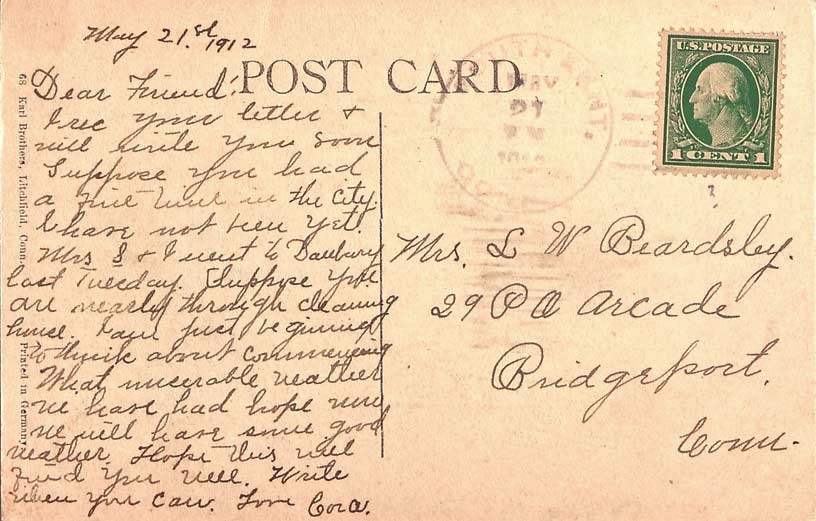 May 21.st 1912
POST CARD
U.S. POSTAGE
1 CENT 1
SOUTH KENT.
MAY
21
1912
CONN
Dear Friend:
I rec your letter +
will write you soon
Suppose you had
a fine time in the City.
I have not been yet.
Mrs S + I went to Danbury
last Tuesday. Suppose you
are nearly through cleaning
house. I am just beginning
to think about commencing
What miserable weather
we have had hope now
we will have some good
weather. Hope this will
find you well. Write
when you can. Love Cora.
Mrs. L W Beardsley.
29 P O Arcade
Bridgeport,
Conn.
68 Karl Brothers, Litchfield, Conn.
Printed in Germany